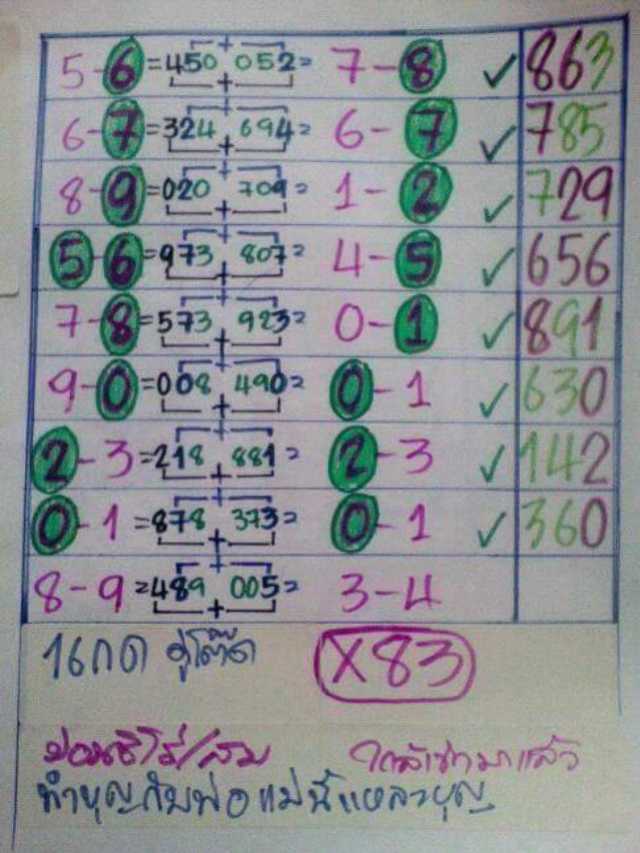 5-6=450 052= 7-8 ✓ 863
6-7=324 694= 6-7 ✓ 785
8-9=020 709= 1-2 ✓ 729
5-6=973 807= 4-5 ✓ 656
7-8=573 923= 0-1 ✓ 891
9-0=008 490= 0-1 ✓ 630
2-3=218 881= 2-3 ✓ 142
0-1=878 373= 0-1 ✓ 360
8-9=489 005= 3-4
X83
ใกล้เข้ามาแล้ว
ทำบุญกับพ่อแม่นี่แหละบุญ